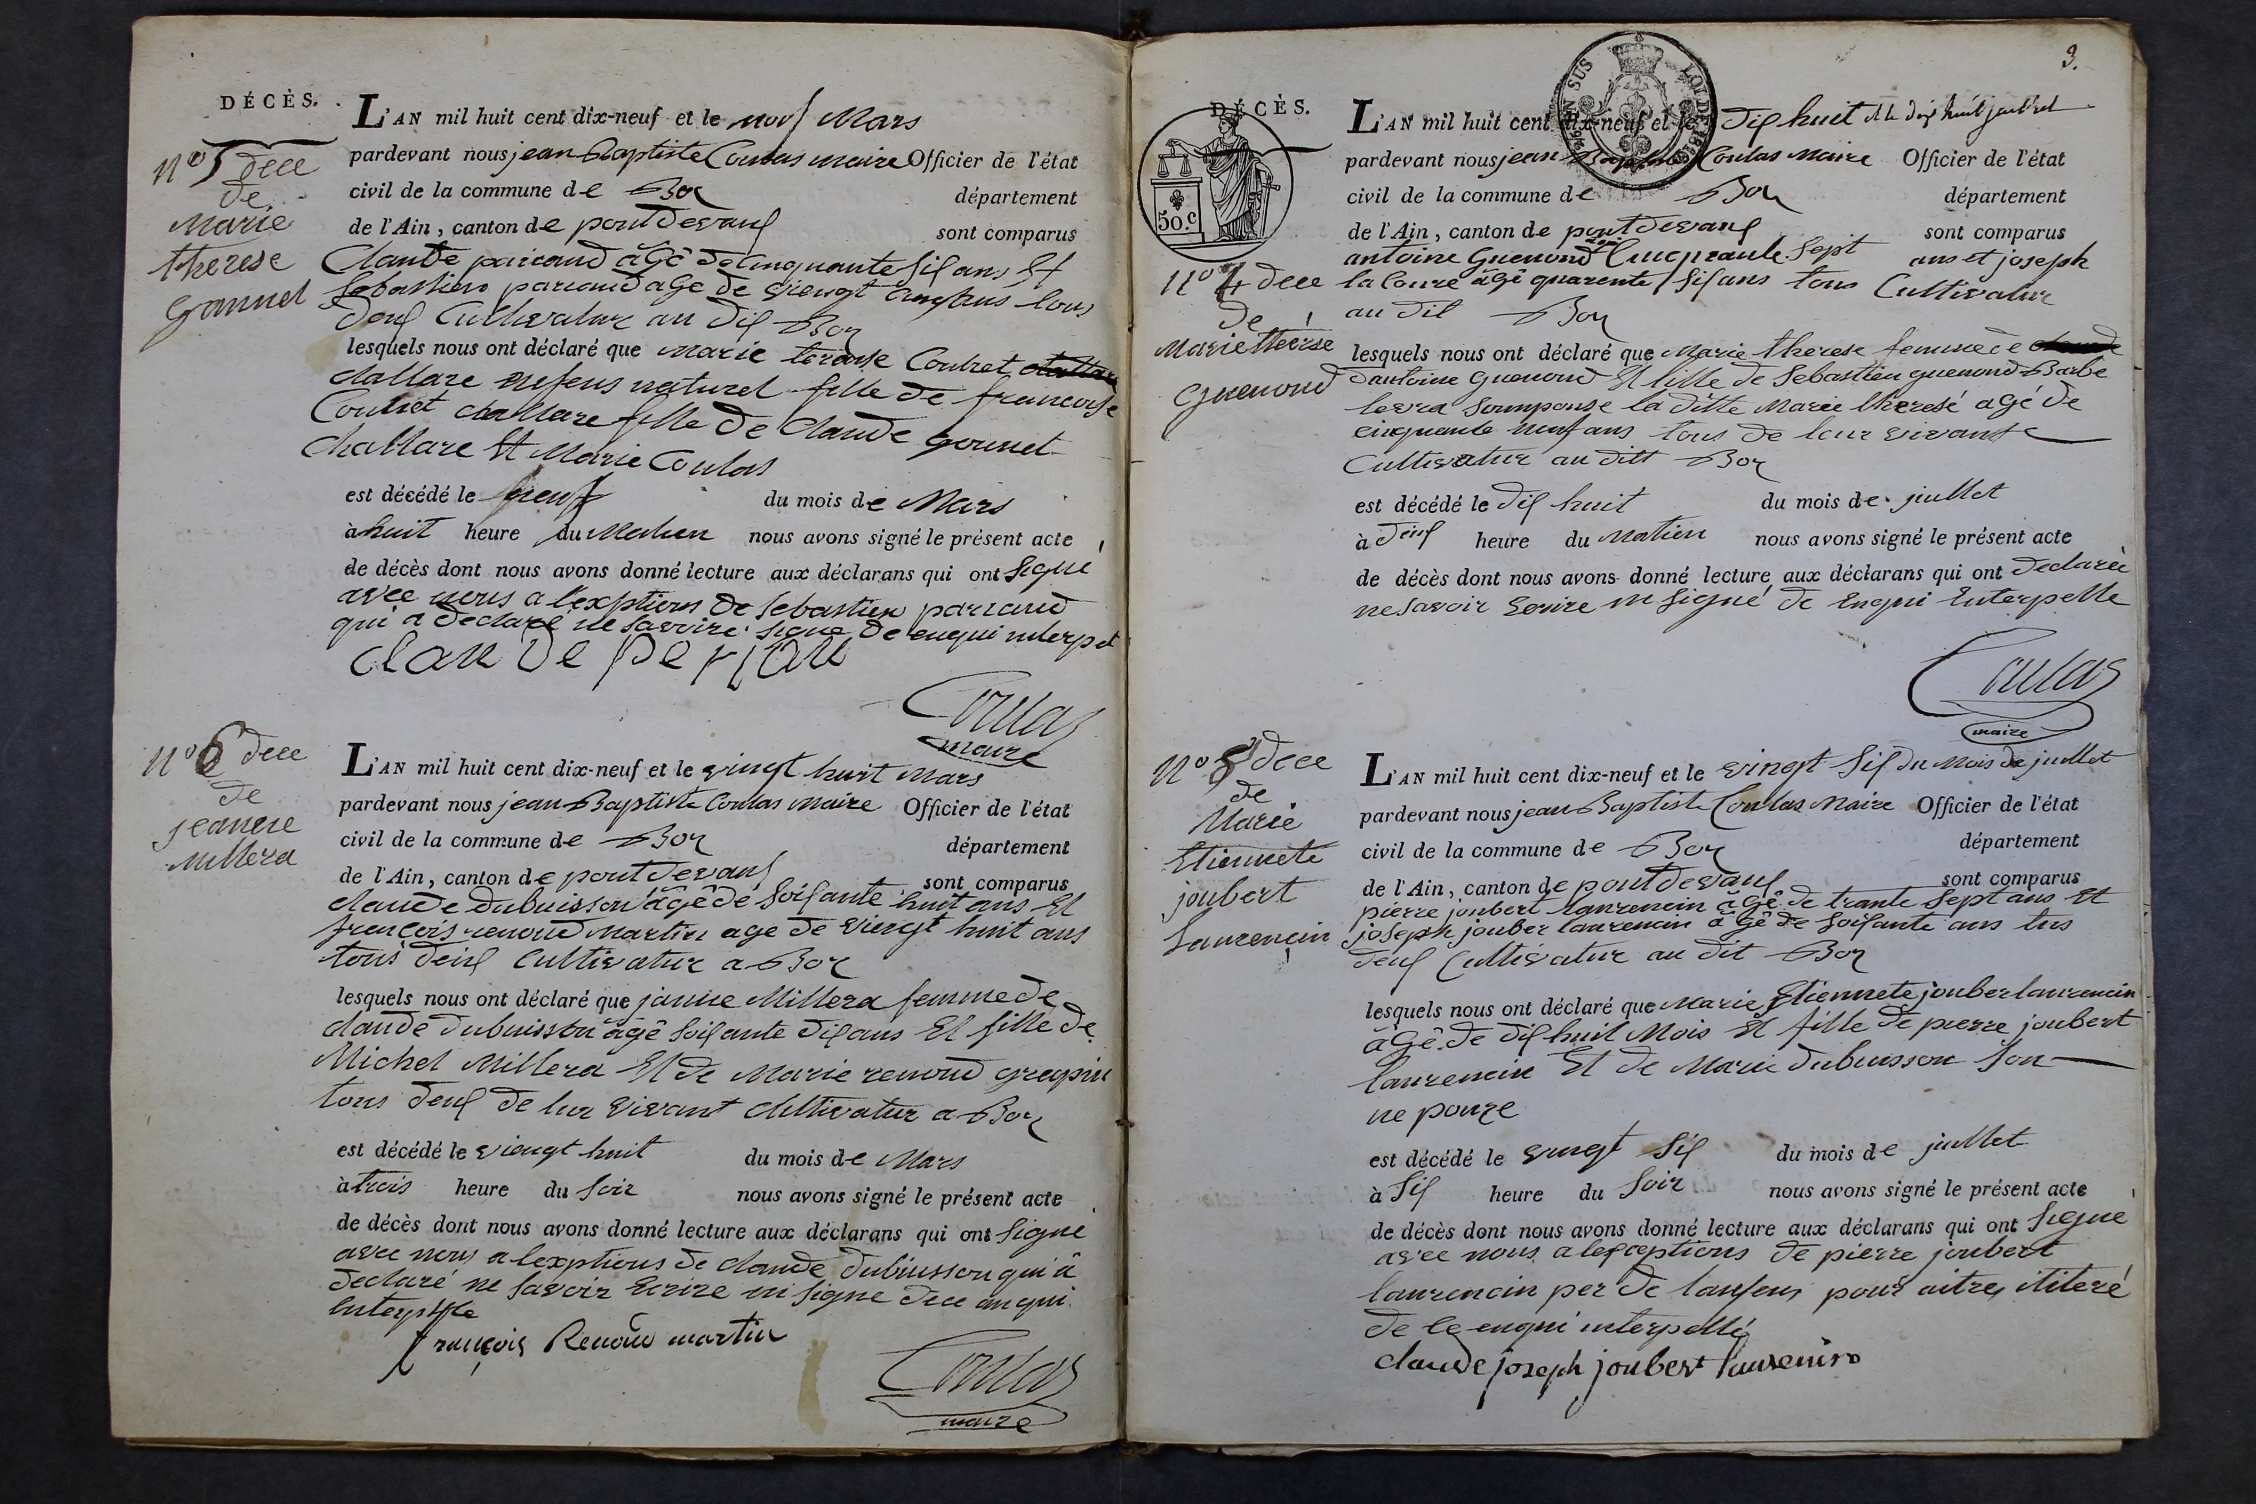 DÉCÈS.
L'AN mil huit cent dix-neuf et le neuf Mars
pardevant nous jean Baptiste Coulas maire Officier de l'état
civil de la commune de Boz
département
de l'Ain, canton de pont devaux
sont comparus
Claude pariaud âGê de cinquante six ans Et
Sebastien pariaud aGe de viengt cinq ans tous
deux Cultivatur au dit Boz
lesquels nous ont déclaré que Marie terese Contret
challare enfens naturel fille de francoise
Contret challare fille de Claude gonnet
challare Et Marie Coulas
est décédé le neuf du mois de Mars
à huit heure du Matien nous avons signé le présent acte
de décès dont nous avons donné lecture aux déclarans qui ont signé
avec nous a l'exptions de sebastien pariaud
qui a declaré ne savoire signe de enqui interpel
Coulas
maire
n° 5 dece
de
Marie
therese
gonnet
n° 6 dece
de
jeanne
Millera
L'AN mil huit cent dix-neuf et le vingt huit Mars
pardevant nous jean Baptiste Coulas Maire Officier de l'état
civil de la commune de Boz
département
de l'Ain, canton de pont devaux
sont comparus
claude dubuisson âgê de soisante huit ans Et
françois renoud Martin age de viengt huit ans
tous deux Cultivatur a Boz
lesquels nous ont déclaré que janne Millera femme de
claude dubuisson âgê soisante dix ans Et fille de
Michel Millera Et de Marie renoud grapin
tous deux de lur vivant Cultivatur a Boz
est décédé le viengt huit du mois de Mars
à trois heure du soir nous avons signé le présent acte
de décès dont nous avons donné lecture aux déclarans qui ont signe
avec nous a lexptions de claude dubuisson qui â
declaré ne savoir Ecrire ni signe dece anqui
Enterpelle
françois Renoud martin
Coulas
maire
3.
DÉCÈS.
50.c
L'AN mil huit cent dix-neuf et le dix huit et le dix huit juillet
pardevant nous jean Baptiste Coulas Maire Officier de l'état
civil de la commune de Boz
département
de l'Ain, canton de pont devaux
sont comparus
antoine Guenoud Cincquante Sept ans et joseph
la Coure âgê quarente six ans tous Cultivatur
au dit Boz
lesquels nous ont déclaré que Marie therese femme de
dantoine guenoud Et fille de Sebastien guenoud Barbe
la ditte Marie theresé agé de
cinquante neuf ans tous de leur vivant
Cultivatur au ditt Boz
est décédé le dix huit du mois de juillet
à deux heure du Matien nous avons signé le présent acte
de décès dont nous avons donné lecture aux déclarans qui ont declarée
ne savoir Ecrire ni signé de Enqui Enterpelle
Coulas
maire
n° 4 dece
de
Marie theerse
Guenoud
n° 5 dece
de
Marie
Etiennete
joubert
Laurencin
L'AN mil huit cent dix-neuf et le vingt six du Mois de juillet
pardevant nous jean Baptiste Coulas Maire Officier de l'état
civil de la commune de Boz
département
de l'Ain, canton de pont devaux
sont comparus
pierre joubert laurencin âGê de trante sept ans Et
joseph jouber laurencin âGê de soisante ans tus
deux Cultivatur au dit Boz
lesquels nous ont déclaré que Marie Etiennete jouber laurencin
âGê de dix huit Mois Et fille de pierre joubert
laurencin Et de Marie dubuisson son
ne pouze
est décédé le vingt six du mois de juillet
à six heure du soir nous avons signé le présent acte
de décès dont nous avons donné lecture aux déclarans qui ont signé
avec nous a lexceptions de pierre joubert
laurencin per de lanfens pour aitre ititeré
de le enqui interpellé
claude joseph joubert laurencin